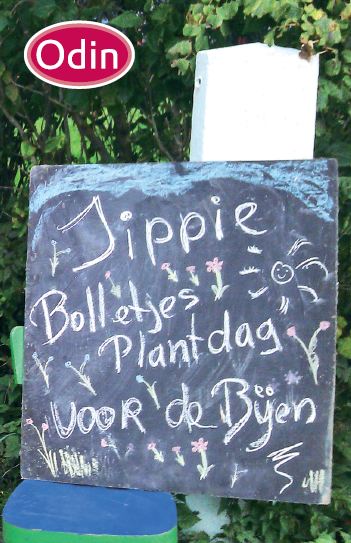 Odin
Jippie
Bolletjes
Plantdag
voor de Bijen